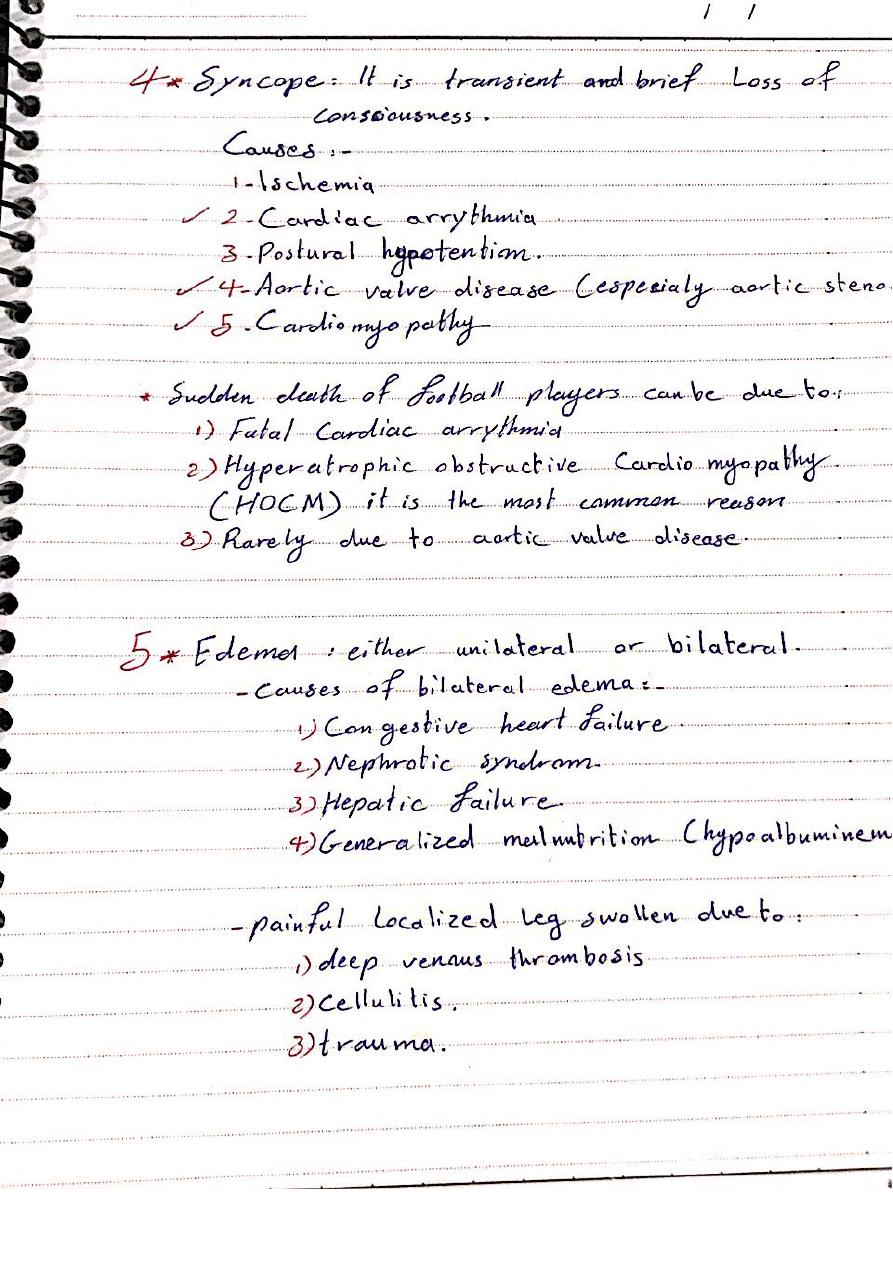 / /
4* Syncope: It is transient and brief Loss of
consciousness.
Causes :-
1-Ischemia
✓ 2-Cardiac arrythmia
3-Postural hypotention.
✓ 4-Aortic valve disease (especialy aortic steno
✓ 5-Cardiomyopathy
* Sudden death of football players can be due to:
1) Fatal Cardiac arrythmia
2) Hyperatrophic obstructive Cardiomyopathy
(HOCM) it is the most common reason
3) Rarely due to aortic valve disease.
5* Edema : either unilateral or bilateral.
- Causes of bilateral edema:-
1) Congestive heart failure
2) Nephrotic syndrom.
3) Hepatic failure.
4) Generalized malnutrition (hypoalbuminem
- painful Localized Leg swollen due to :
1) deep venous thrombosis
2) Cellulitis.
3) trauma.